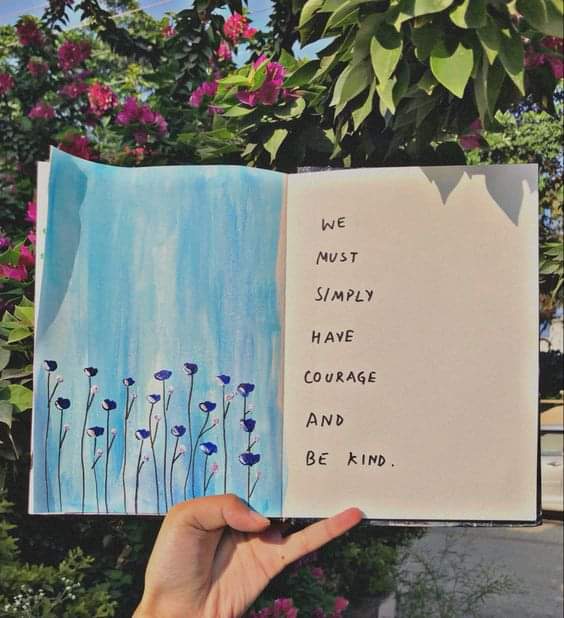 WE
MUST
SIMPLY
HAVE
COURAGE
AND
BE KIND.